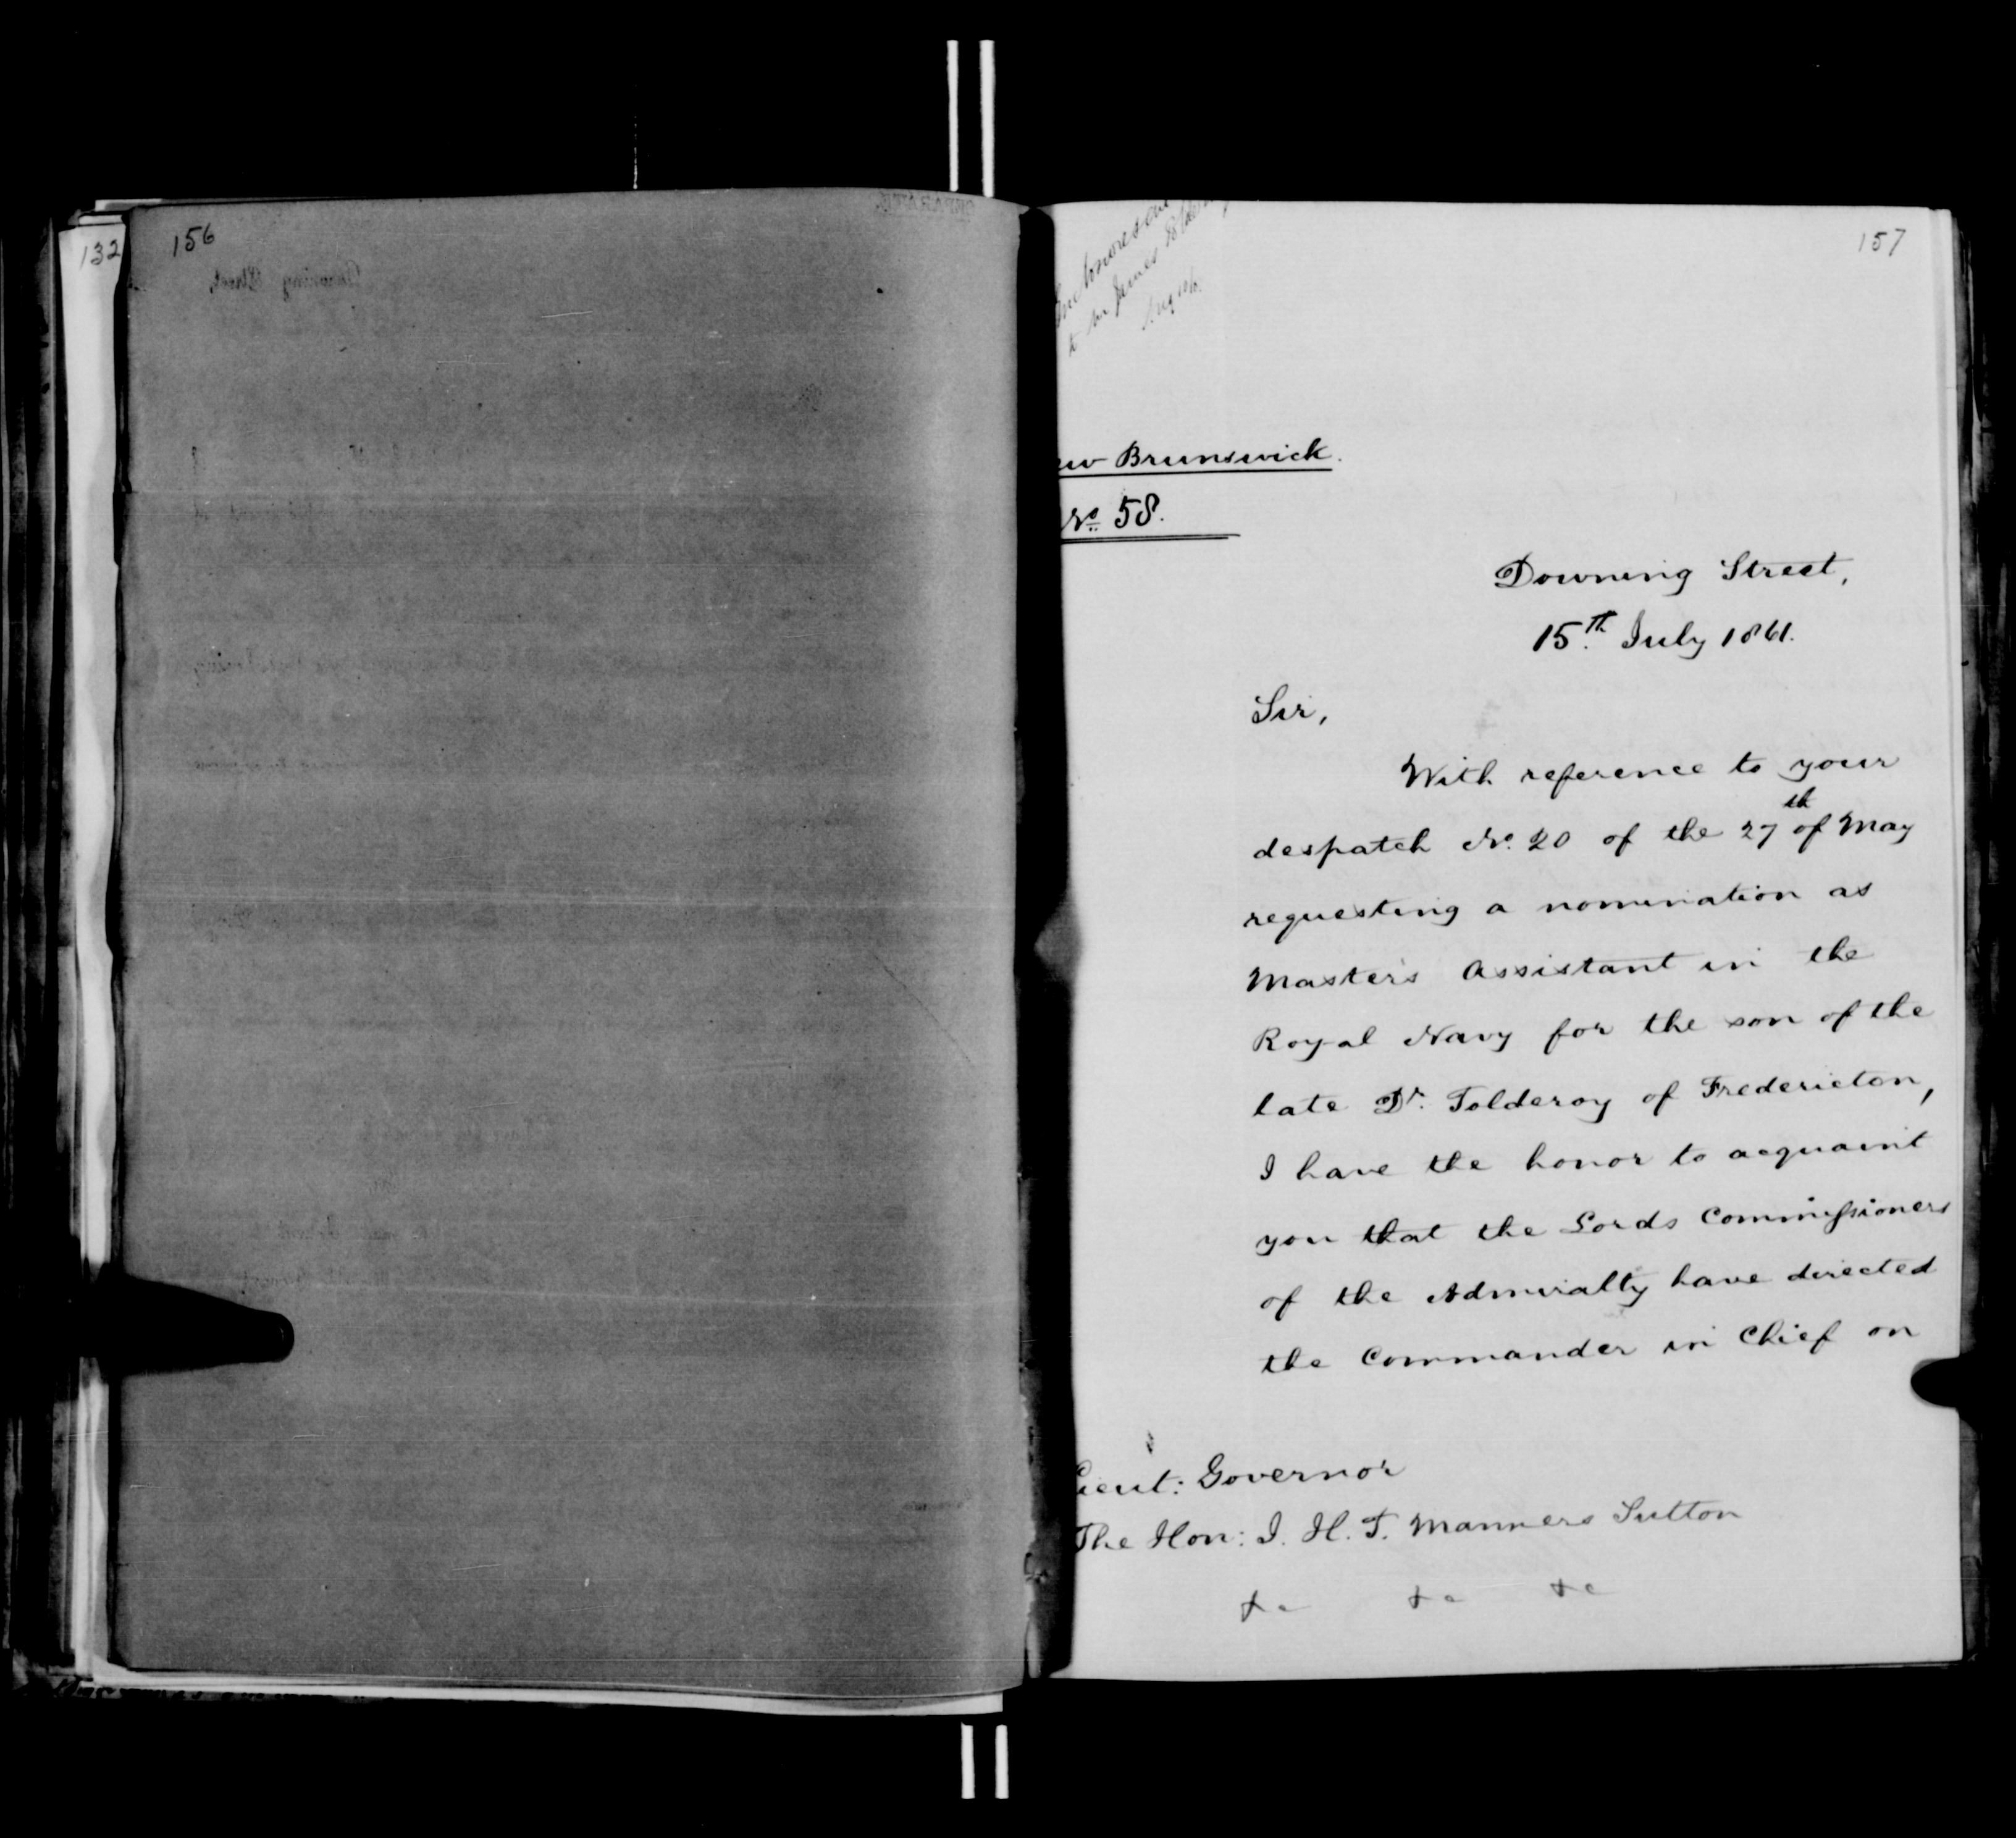 132
156
157
ew Brunswick.
No. 58.
Downing Street,
15th July 1861.
Sir,
With reference to your
despatch No. 20 of the 27th of May
requesting a nomination as
Master's Assistant in the
Royal Navy for the son of the
late Dr. Tolderoy of Fredericton,
I have the honor to acquaint
you that the Lords Commissioners
of the Admiralty have directed
the Commander in Chief on
ieut: Governor
The Hon: J. H. T. Manners Sutton
&c &c &c